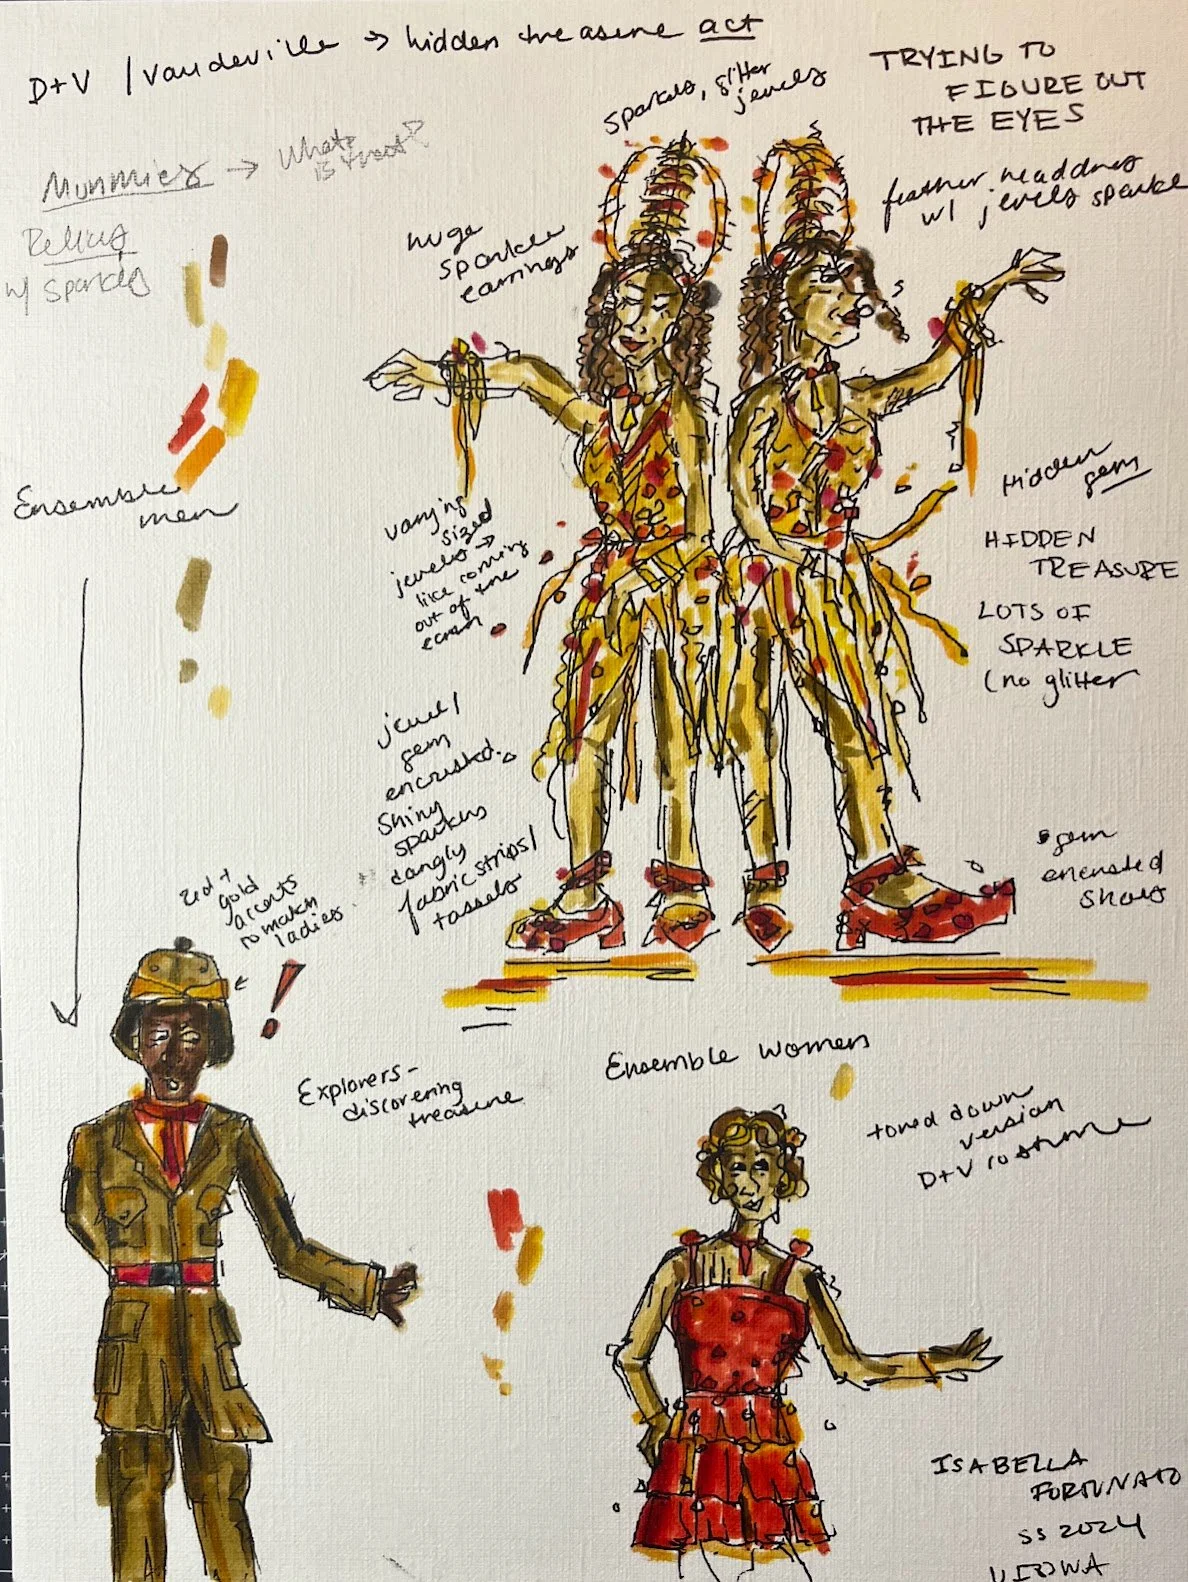 D+V / Vaudeville → hidden treasure act
TRYING TO
FIGURE OUT
THE EYES
sparkles, glitter
jewels
Mummies → What
is that?
Relics
w/ sparkles
feather headdress
w/ jewels sparkle
huge
sparkle
earrings
Ensemble
men
varying
sized
jewels →
like coming
out of the
Hidden
gem
HIDDEN
TREASURE
LOTS OF
SPARKLE
(no glitter
jewel/
gem
encrusted.
shiny
sparkles
dangly
fabric strips/
tassels
gem
encrusted
shoes
red +
gold
accents
to match
ladies
!
Explorers-
discovering
treasure
Ensemble women
toned down
version
D+V costume
ISABELLA
FORTUNATO
SS 2024